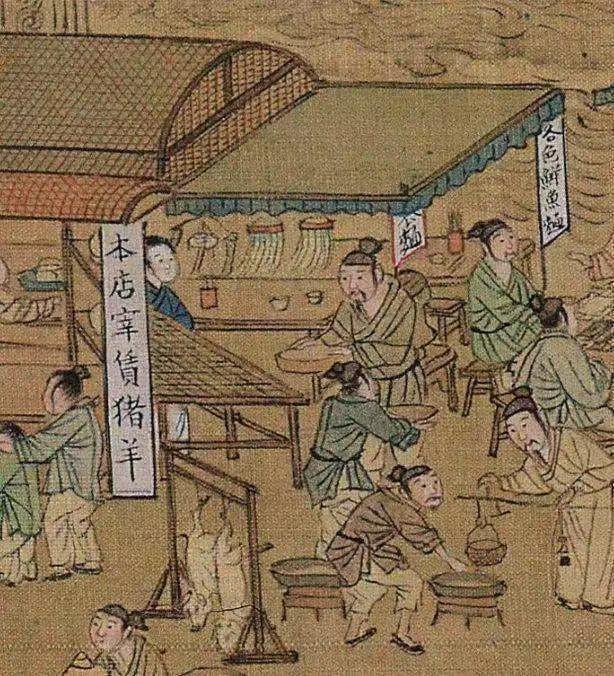 本店宰賃猪羊
各色鮮魚麺